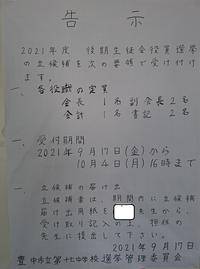 告示
2021年度 後期生徒会役員選挙
の立候補を次の要領で受け付け
ます。
一、各役職の定員
会長 1名 副会長 2名
会計 1名 書記 2名
一、受付期間
2021年9月17日(金)から
10月4日(月)16時まで
一、立候補の届け出
立候補者は、期間内に立候補
届け出用紙を 先生から、
受け取り記入の上、担任の
先生に提出して下さい。
2021年9月17日
豊中市立第十七中学校 選挙管理委員会